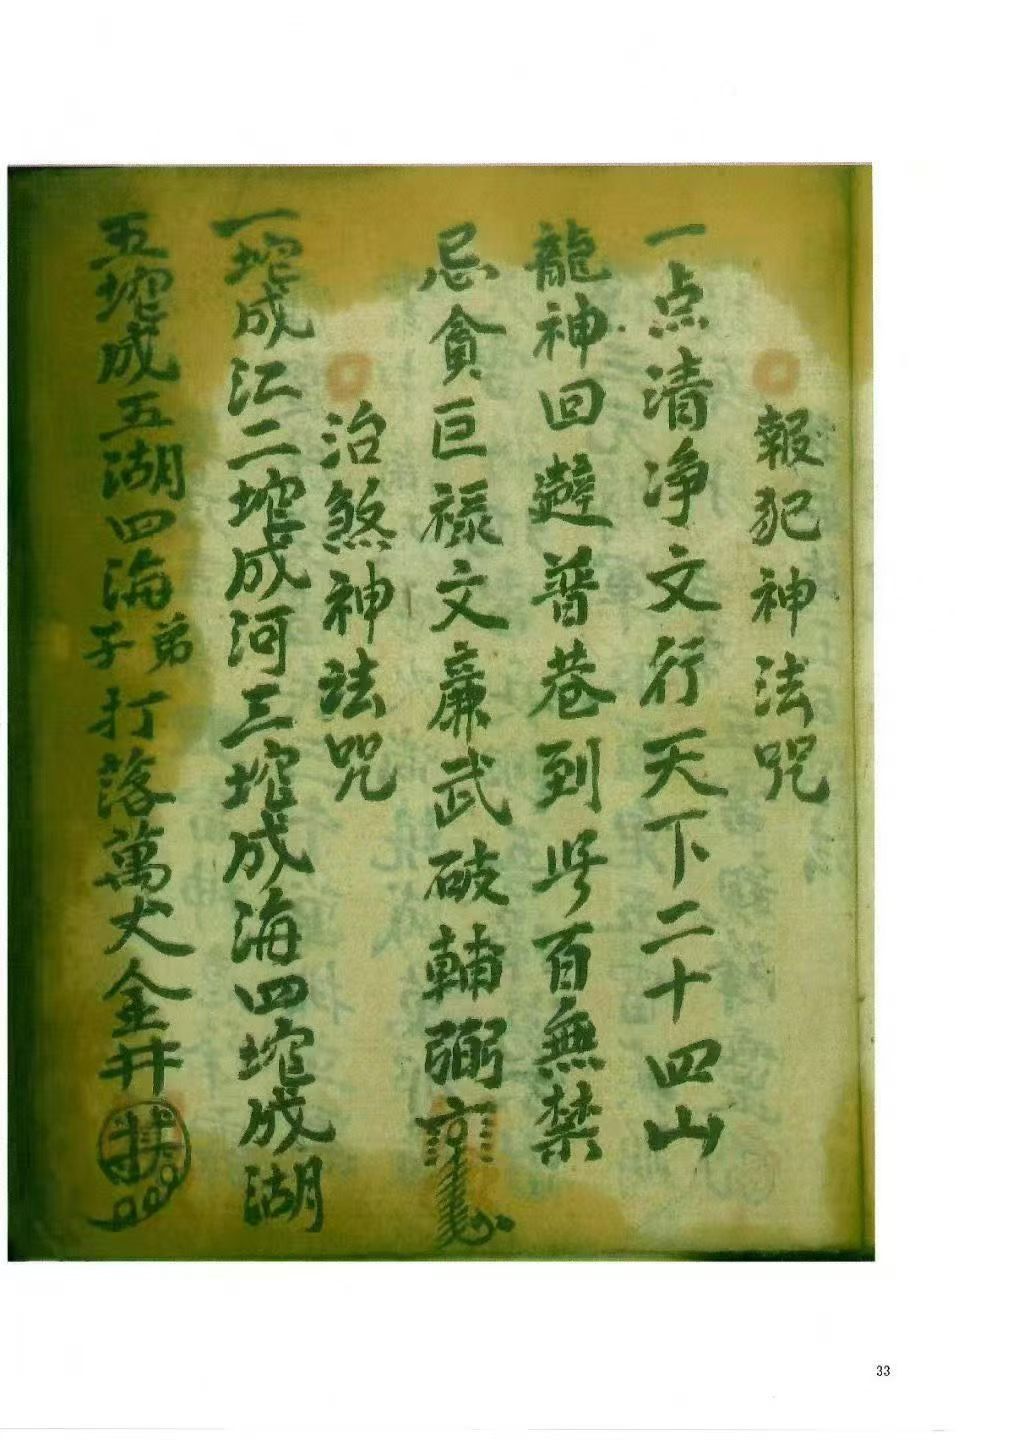 報犯神法咒
一点清净文行天下二十四山
龍神回避普巷到此百無禁
忌貪巨禄文廉武破輔弼
治煞神法咒
一埪成江二埪成河三埪成海四埪成湖
五埪成五湖四海弟子打落萬丈金井
33